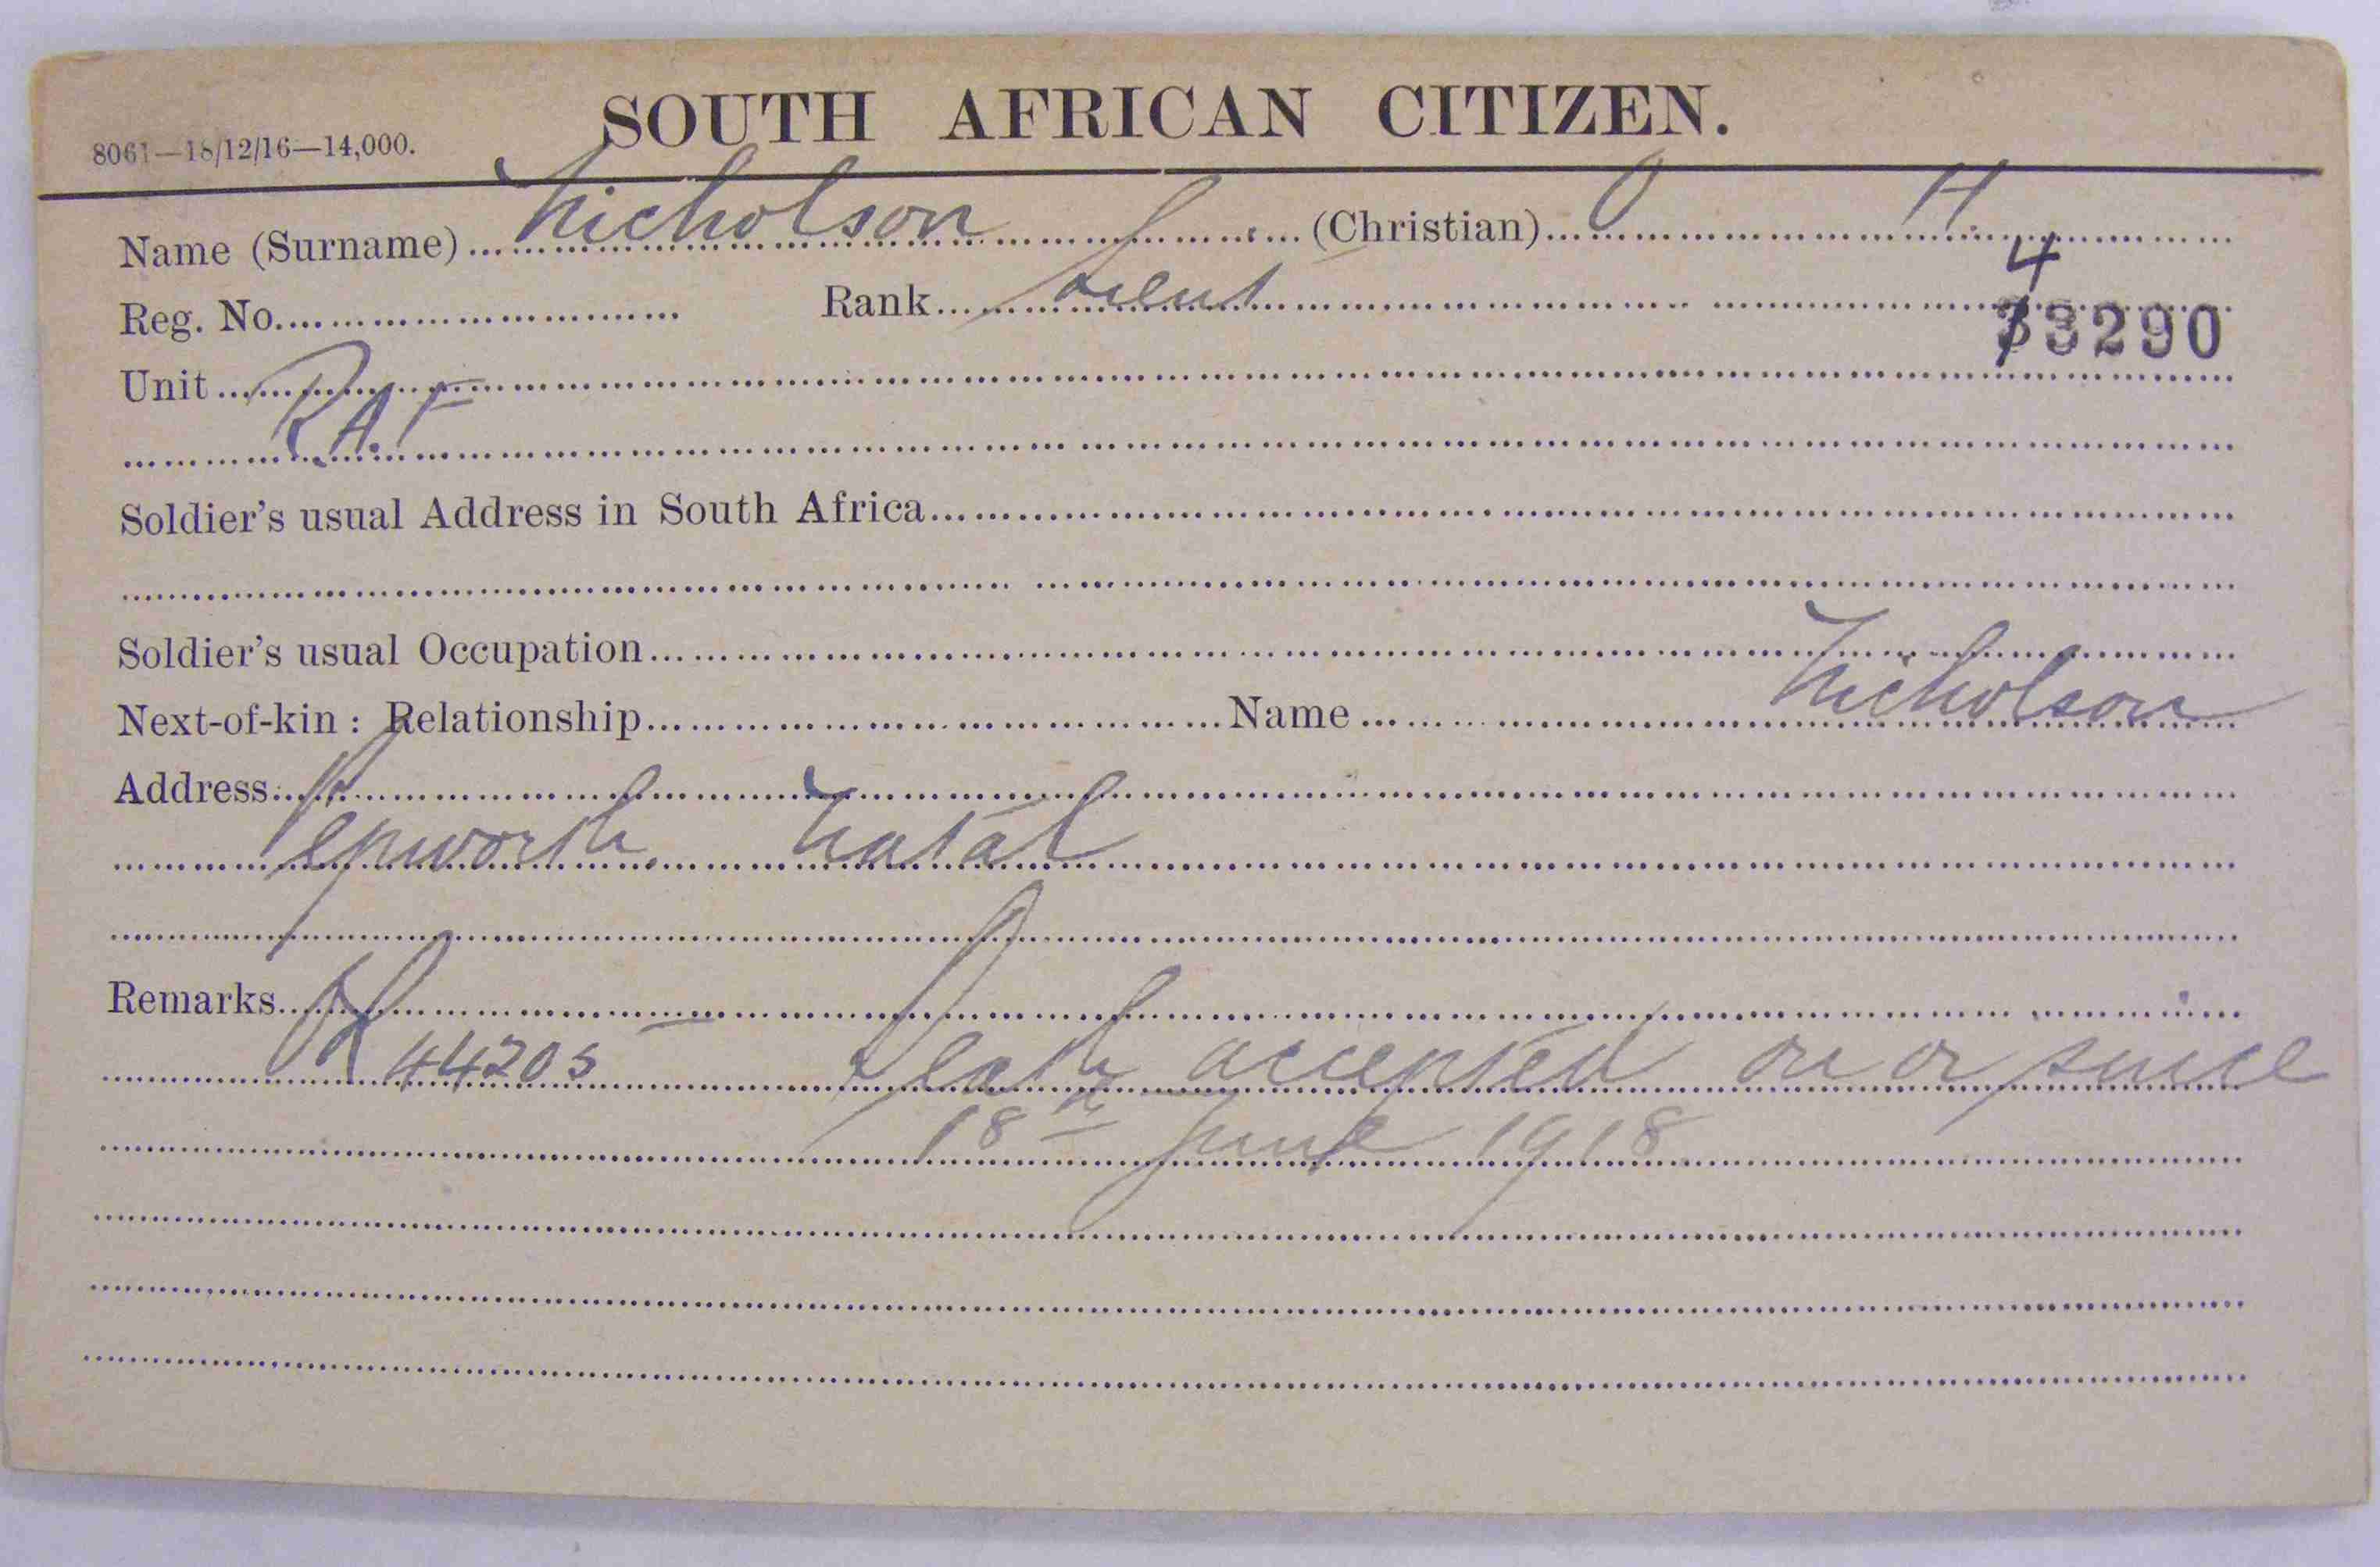 SOUTH AFRICAN CITIZEN.
8061—18/12/16—14,000.
Name (Surname) Nicholson (Christian) O H.
Reg. No. Rank Lieut
4
33290
Unit R.A.F
Soldier's usual Address in South Africa
Soldier's usual Occupation
Next-of-kin : Relationship Name Nicholson
Address
Pepworth. Natal
Remarks
R 44205 — Death accepted on or since
18th June 1918